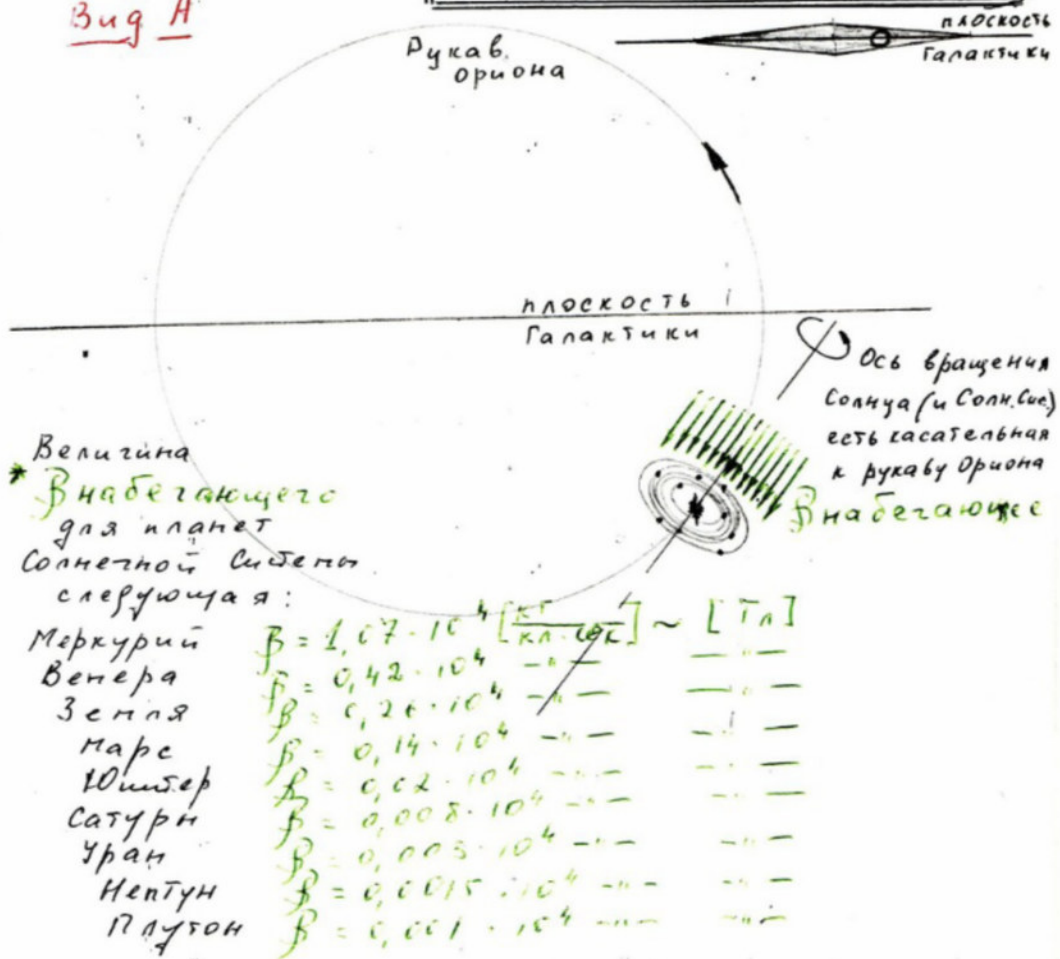 Вид А
плоскость
Галактики
Рукав
ориона
плоскость
Галактики
Ось вращения
Солнца (и Солн.Сис.)
есть касательная
к рукаву Ориона
B набегающее
Величина
* B набегающего
для планет
Солнечной Системы
следующая:
Меркурий B = 1,07 · 10⁴ [кг/кл·сек] ~ [Тл]
Венера B = 0,42 · 10⁴ -"- -"-
Земля B = 0,26 · 10⁴ -"- -"-
Марс B = 0,14 · 10⁴ -"- -"-
Юпитер B = 0,02 · 10⁴ -"- -"-
Сатурн B = 0,008 · 10⁴ -"- -"-
Уран B = 0,003 · 10⁴ -"- -"-
Нептун B = 0,0015 · 10⁴ -"- -"-
Плутон B = 0,001 · 10⁴ -"- -"-